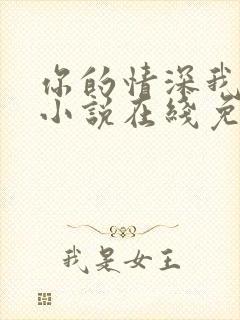 你的情深我
小说在线免
我是女王